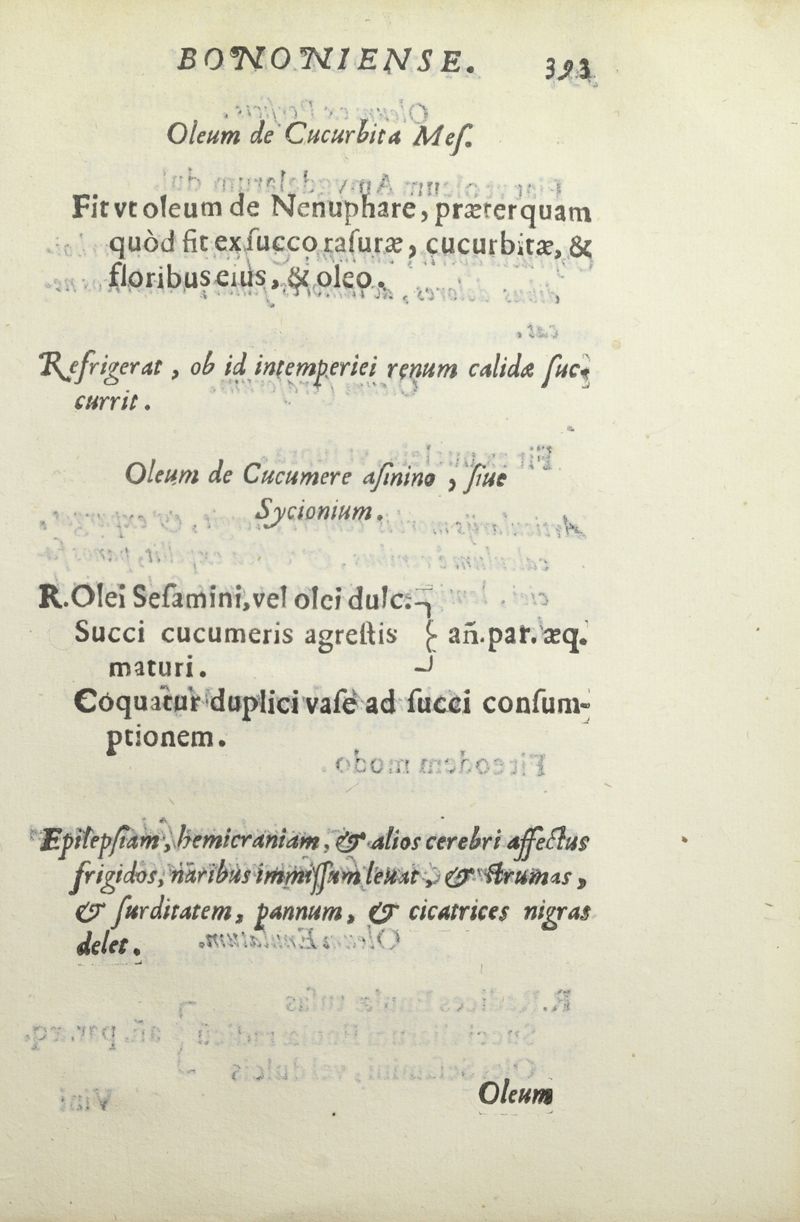 BONONIENSE. 393
Oleum de Cucurbita Meſ.
Fit vt oleum de Nenuphare, præterquam
quòd fit ex ſucco raſuræ, cucurbitæ, &
floribus eius, & oleo.
Refrigerat, ob id intemperiei renum calidæ ſuc-
currit.
Oleum de Cucumere aſinino, ſiue
Sycionium.
R. Olei Seſamini, vel olei dulc.
Succi cucumeris agreſtis } añ. par. æq.
maturi.
Coquatur duplici vaſe ad ſucci conſum-
ptionem.
Epilepſiam, hemicraniam, & alios cerebri affectus
frigidos, naribus immiſſum leuat, & ſtrumas,
& ſurditatem, pannum, & cicatrices nigras
delet.
Oleum